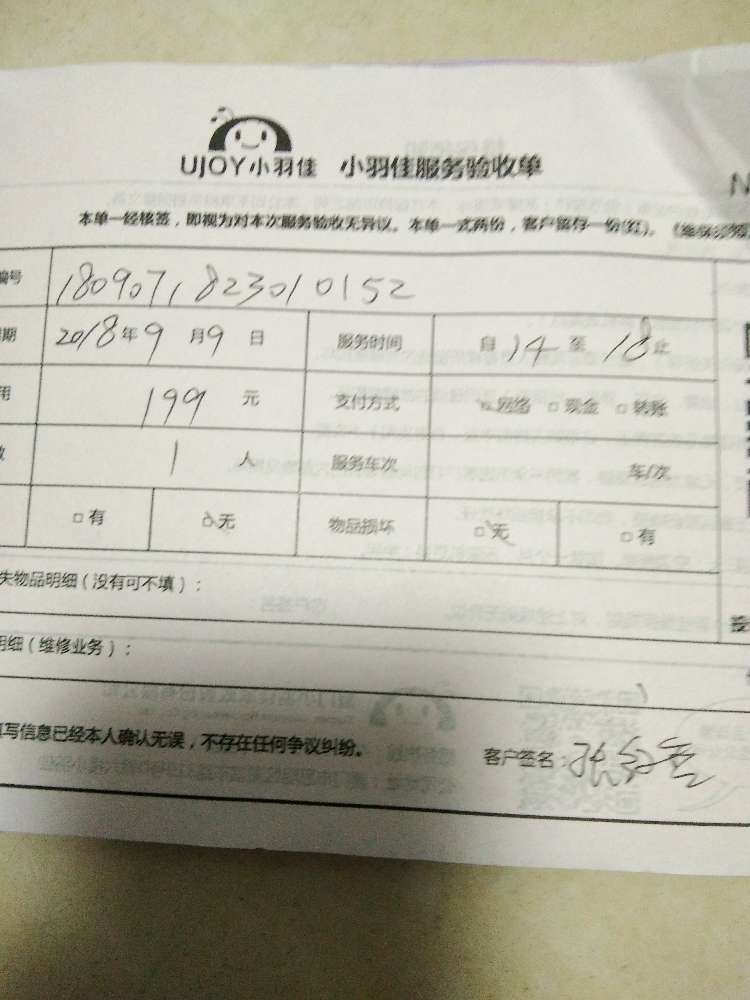 UJOY小羽佳 小羽佳服务验收单
N
本单一经核签，即视为对本次服务验收无异议。本单一式两份，客户留存一份(红)。
编号 1809071823010152
期 2018年9月9日 服务时间 自14至18止
用 199元 支付方式 网络 □现金 □转账
数 1人 服务车次 车/次
□有 □无 物品损坏 □无 □有
失物品明细（没有可不填）：
明细（维修业务）：
填写信息已经本人确认无误，不存在任何争议纠纷。 客户签名：